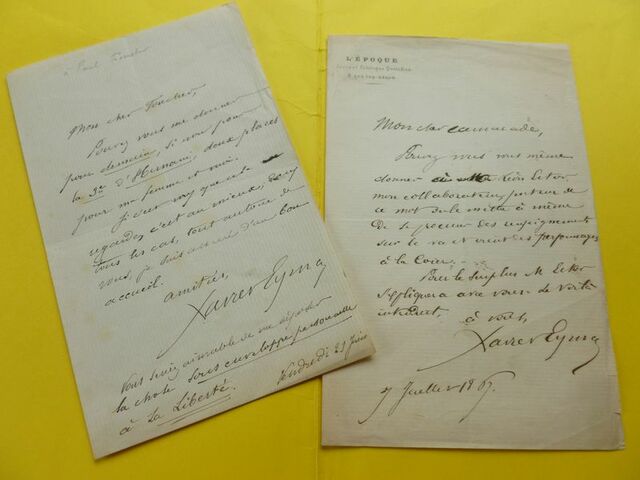 à Paul Foucher
Mon cher Foucher,
Pouvez vous me donner
pour demain, si non pour
la 3e d'Hernani, deux places
pour ma femme et moi.
regardez c'est au mieux; dans
tous les cas, tout autour de
vous, je suis assuré d'un bon
accueil.
amitiés,
Xavier Eyma
Vous seriez aimable de me répondre
la chose sous enveloppe personnelle
à La Liberté.
Vendredi 21 Juin
L'ÉPOQUE
Journal Politique Quotidien
Mon cher camarade,
Pouvez vous vous même
donner à Léon
mon collaborateur, porteur de
ce mot de le mettre à même
de se procurer des renseignements
sur le va et vient des personnages
à la Cour.
Pour le surplus M.
s'expliquera avec vous de vive
à vous,
Xavier Eyma
7 Juillet 1867.